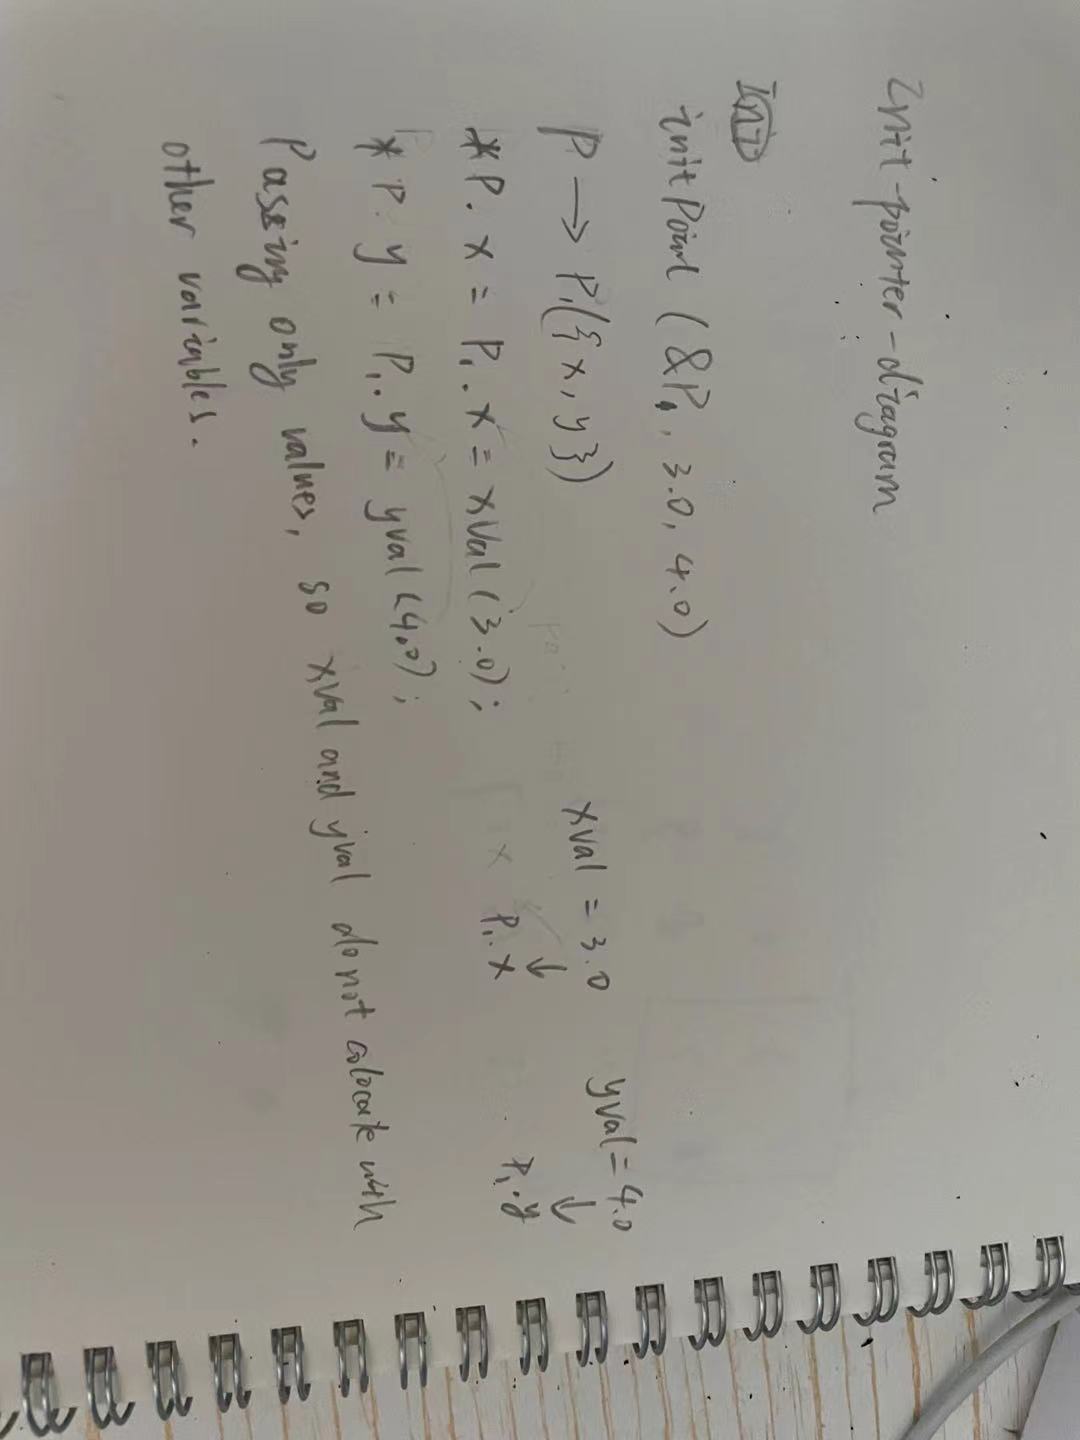 Init-pointer-diagram
initPoint (&P1, 3.0, 4.0)
P → P1({x, y})
*P. x = P1. x = xVal (3.0);
*P. y = P1. y = yval (4.0);
xval = 3.0
↓
P1. x
yval = 4.0
↓
P1. y
Passing only values, so xval and yval do not colocate with
other variables.